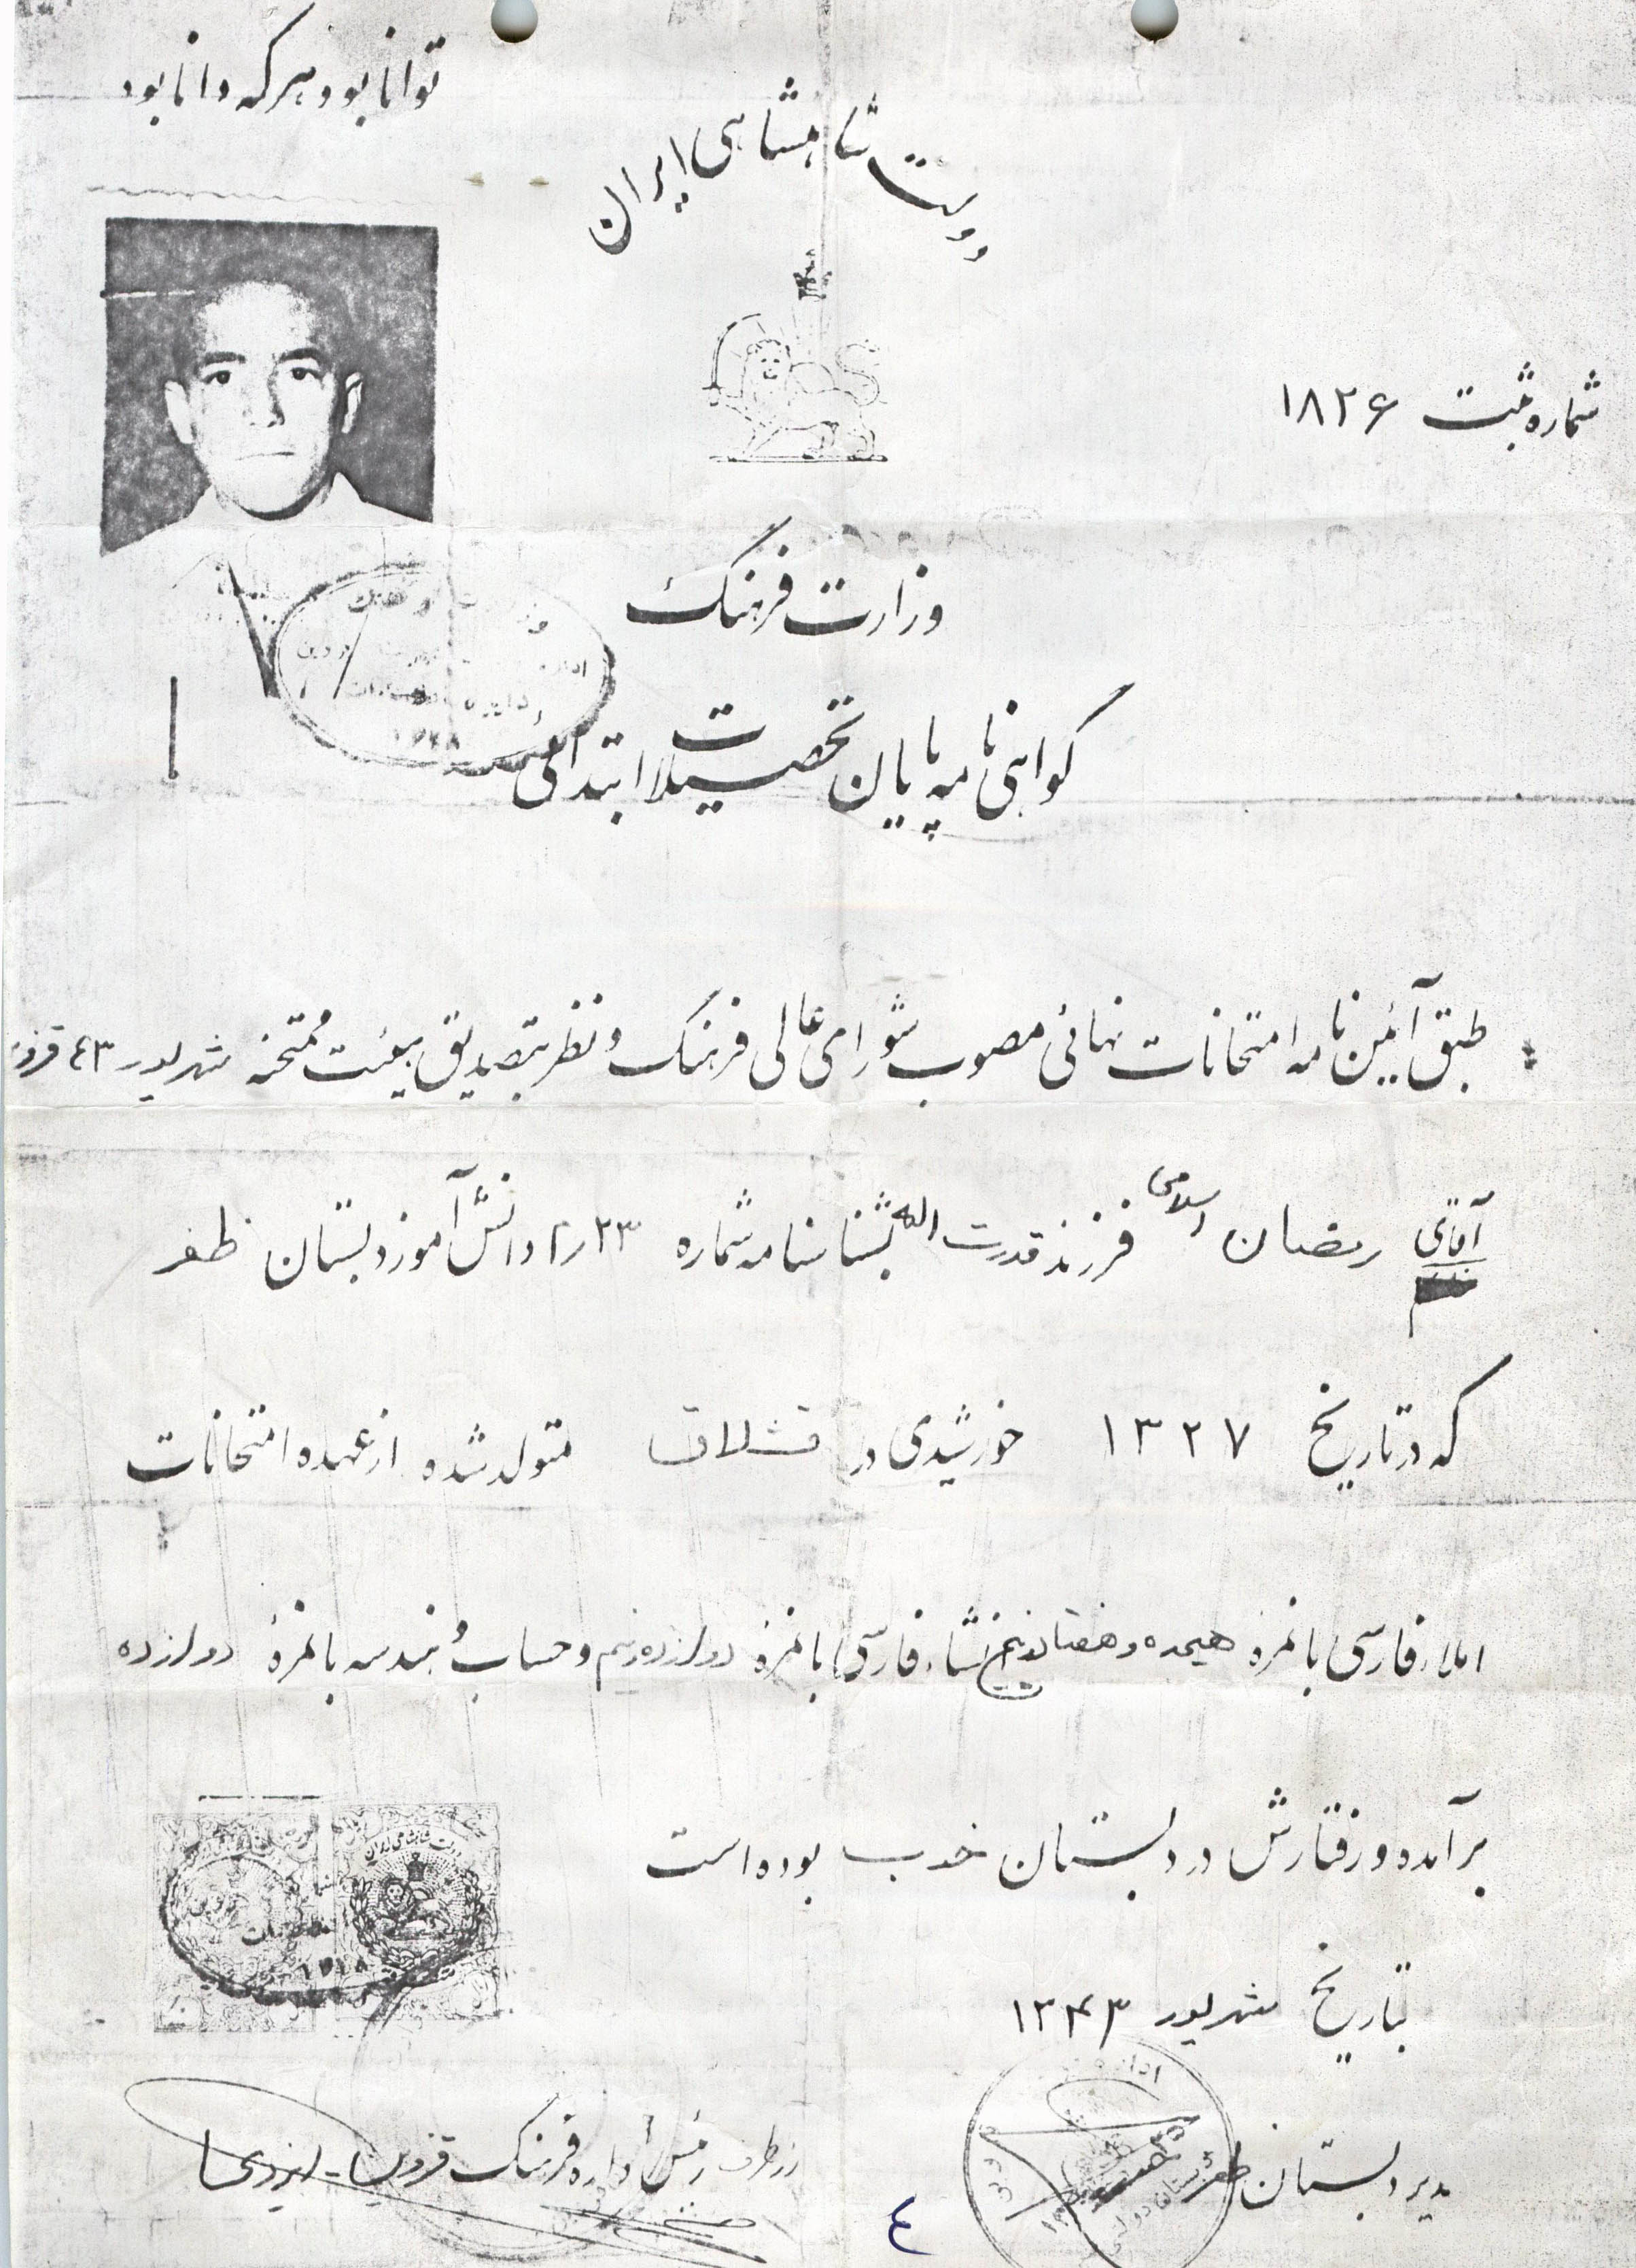 توانا بود هر که دانا بود
دولت شاهنشاهی ایران
شماره ثبت ۱۸۲۶
وزارت فرهنگ
گواهی نامه پایان تحصیلات ابتدائی
طبق آئین نامه امتحانات نهائی مصوب شورای عالی فرهنگ و نظر بتصدیق هیئت ممتحنه شهریور ۴۳ قزوین
آقای رمضان اسلامی فرزند قدرت اله بشناسنامه شماره ۲۳ر۲ دانش آموز دبستان ظفر
که در تاریخ ۱۳۲۷ خورشیدی در قشلاق متولد شده از عهده امتحانات
املاء فارسی با نمرهٔ هیجده و هفتادوپنج انشاء فارسی با نمرهٔ دوازده و نیم و حساب و هندسه با نمرهٔ دوازده
برآمده و رفتارش در دبستان خوب بوده است
بتاریخ شهریور ۱۳۴۳
مدیر دبستان ظفر
از طرف رئیس اداره فرهنگ قزوین -
۴